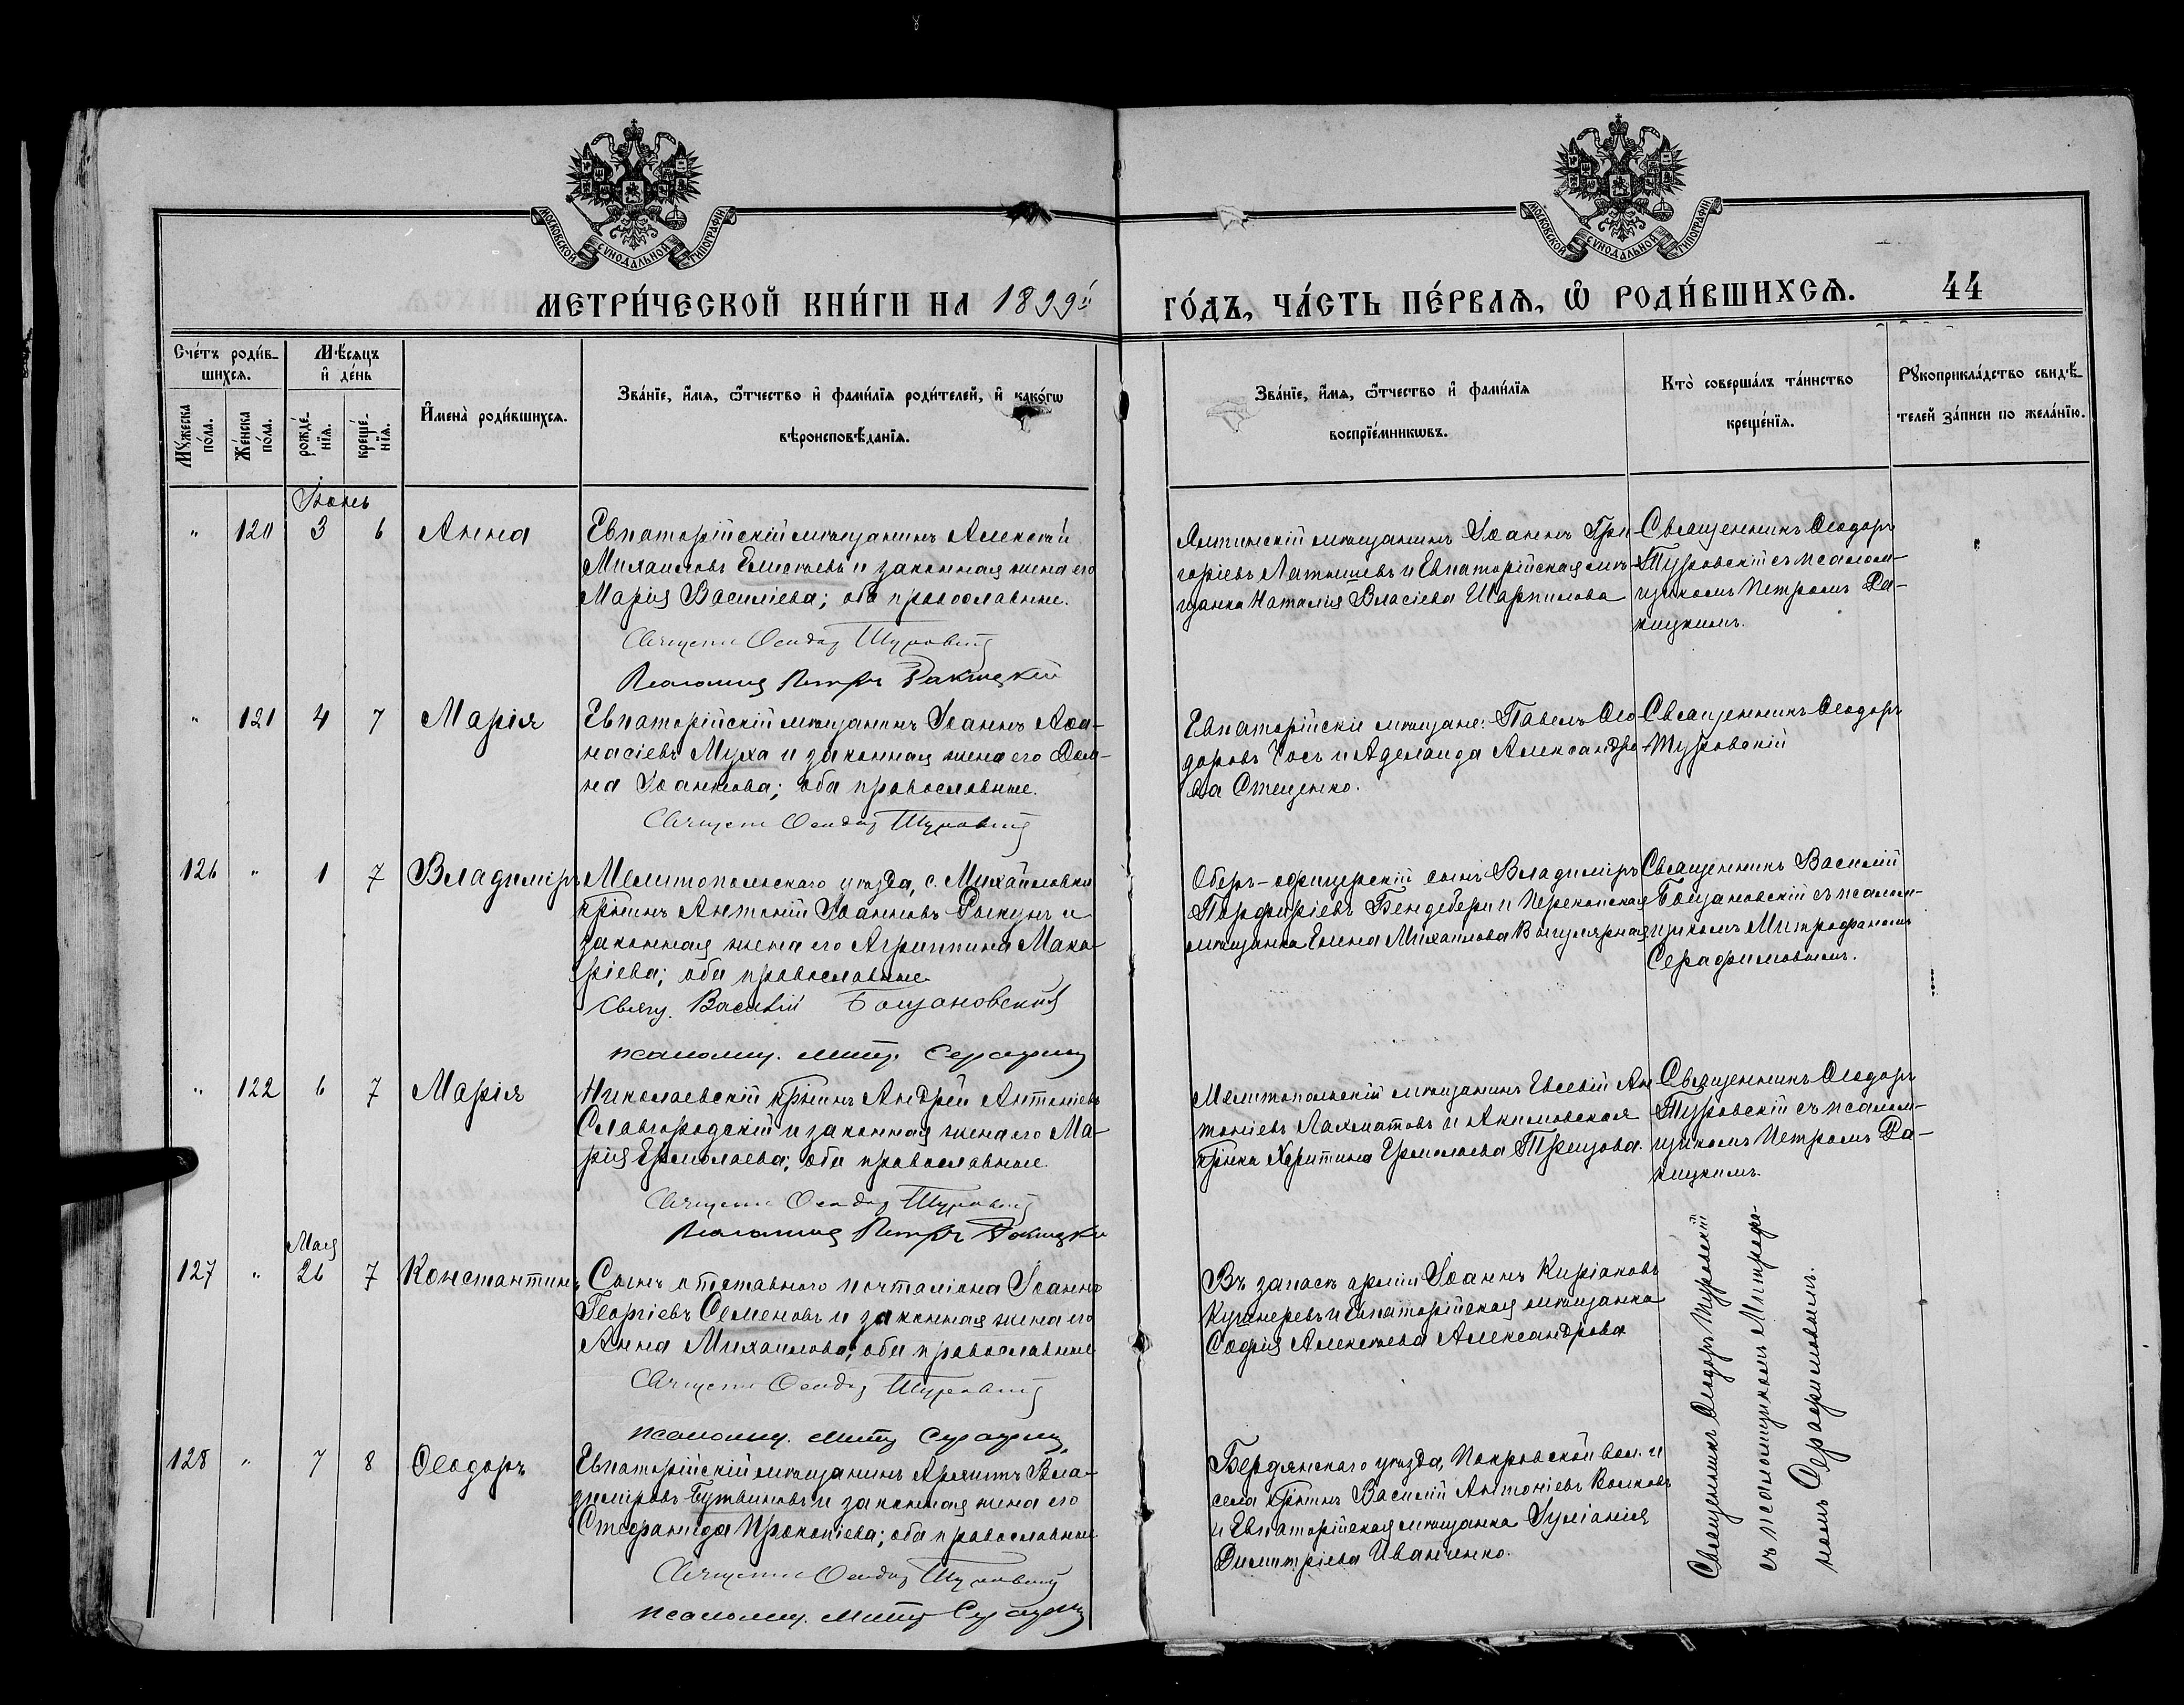 МОСКОВСКОЙ СѴНОДАЛЬНОЙ ТИПОГРАФІИ
МОСКОВСКОЙ СѴНОДАЛЬНОЙ ТИПОГРАФІИ
МЕТРИ́ЧЕСКОЙ КНИ́ГИ НА 1899й
ГО́ДЪ, ЧА́СТЬ ПЕ́РВАѦ, Ѽ РОДИ́ВШИХСѦ. 44
Сче́тъ роди́в-
шихсѧ.
Мꙋжеска
по́ла.
Же́нска
по́ла.
Мѣ́сѧцъ
и҆ де́нь
рожде́-
нїѧ.
креще́-
нїѧ.
И҆мена̀ роди́вшихсѧ.
Зва́нїе, и҆́мѧ, ѻ҆́тчество и҆ фами́лїѧ роди́телей, и҆ како́гѡ
вѣроисповѣ́данїѧ.
Зва́нїе, и҆́мѧ, ѻ҆́тчество и҆ фами́лїѧ
воспрїе́мникѡвъ.
Кто̀ соверша́лъ та́инство
креще́нїѧ.
Рꙋкоприкла́дство свидѣ́-
телей за́писи по жела́нїю.
Іюнь
" 120 3 6 Анна
Евпаторійскій мѣщанинъ Алексѣй
Михаиловъ Елисѣевъ и законная жена его
Марія Василіева; оба православные.
Священн Ѳеодор Туровскій
Псаломщ Петръ Ракицкій
Ялтинскій мѣщанинъ Іоаннъ Гри-
горіевъ Латышевъ и Евпаторійская мѣ-
щанка Наталія Власіева Шарпилова
Священникъ Ѳеодоръ
Туровскій съ псалом-
щикомъ Петромъ Ра-
кицкимъ.
" 121 4 7 Марія
Евпаторійскій мѣщанинъ Іоаннъ Аѳа-
насіевъ Муха и законная жена его
на Іоаннова; оба православные.
Священн Ѳеодор Туровскій
Евпаторійскіе мѣщане: Павелъ Ѳео-
доровъ и Аделаида Александро-
ва Стеценко.
Священникъ Ѳеодоръ
Туровскій
126 " 1 7 Владиміръ
Мелитопольскаго уѣзда, с. Михайловки
кр҃нинъ Антоній Іоанновъ и
законная жена его Агриппина Мака-
ріева; оба православные
Свящ. Василій Бощановскій
псаломщ. Митр. Серафим
Оберъ-офицерскій сынъ Владиміръ
Порфиріевъ Бендебери и Перекопская
мѣщанка Елена Михаилова
Священникъ Василій
Бощановскій съ псалом-
щикомъ Митрофаномъ
Серафимовымъ.
" 122 6 7 Марія
Николаевскій кр҃нинъ Андрей Антоніевъ
Славгородскій и законная жена его Ма-
рія Ермолаева; оба православные.
Священн Ѳеодор Туровскій
Псаломщ Петръ Ракицкій
Мелитопольскій мѣщанинъ Евсевій Ан-
тоніевъ Лахматовъ и Акимовская
кр҃нка Харитина Ермолаева
Священникъ Ѳеодоръ
Туровскій съ псалом-
щикомъ Петромъ Ра-
кицкимъ.
Мая
127 " 26 7 Константинъ
Сынъ отставного почталіона Іоанна
Георгіевъ Семеновъ и законная жена его
Анна Михаилова; оба православные
Священн Ѳеодор Туровскій
псаломщ. Митр Серафим
Въ запасѣ арміи Іоаннъ Киріаковъ
Кушнеревъ и Евпаторійская мѣщанка
Софія Алексѣева Александрова
Священникъ Ѳеодоръ Туровскій
съ псаломщикомъ Митрофа-
номъ Серафимовымъ.
128 " 7 8 Ѳеодоръ
Евпаторійскій мѣщанинъ Вла-
диміровъ Бутвиновъ и законная жена его
Стефанида Прокопіева; оба православные
Священн Ѳеодор Туровскій
псаломщ. Митр Серафим
Бердянскаго уѣзда, Покровской вол. и
села кр҃нинъ Василій Антоніевъ Волковъ
и Евпаторійская мѣщанка Іуліанія
Димитріева Иванченко.